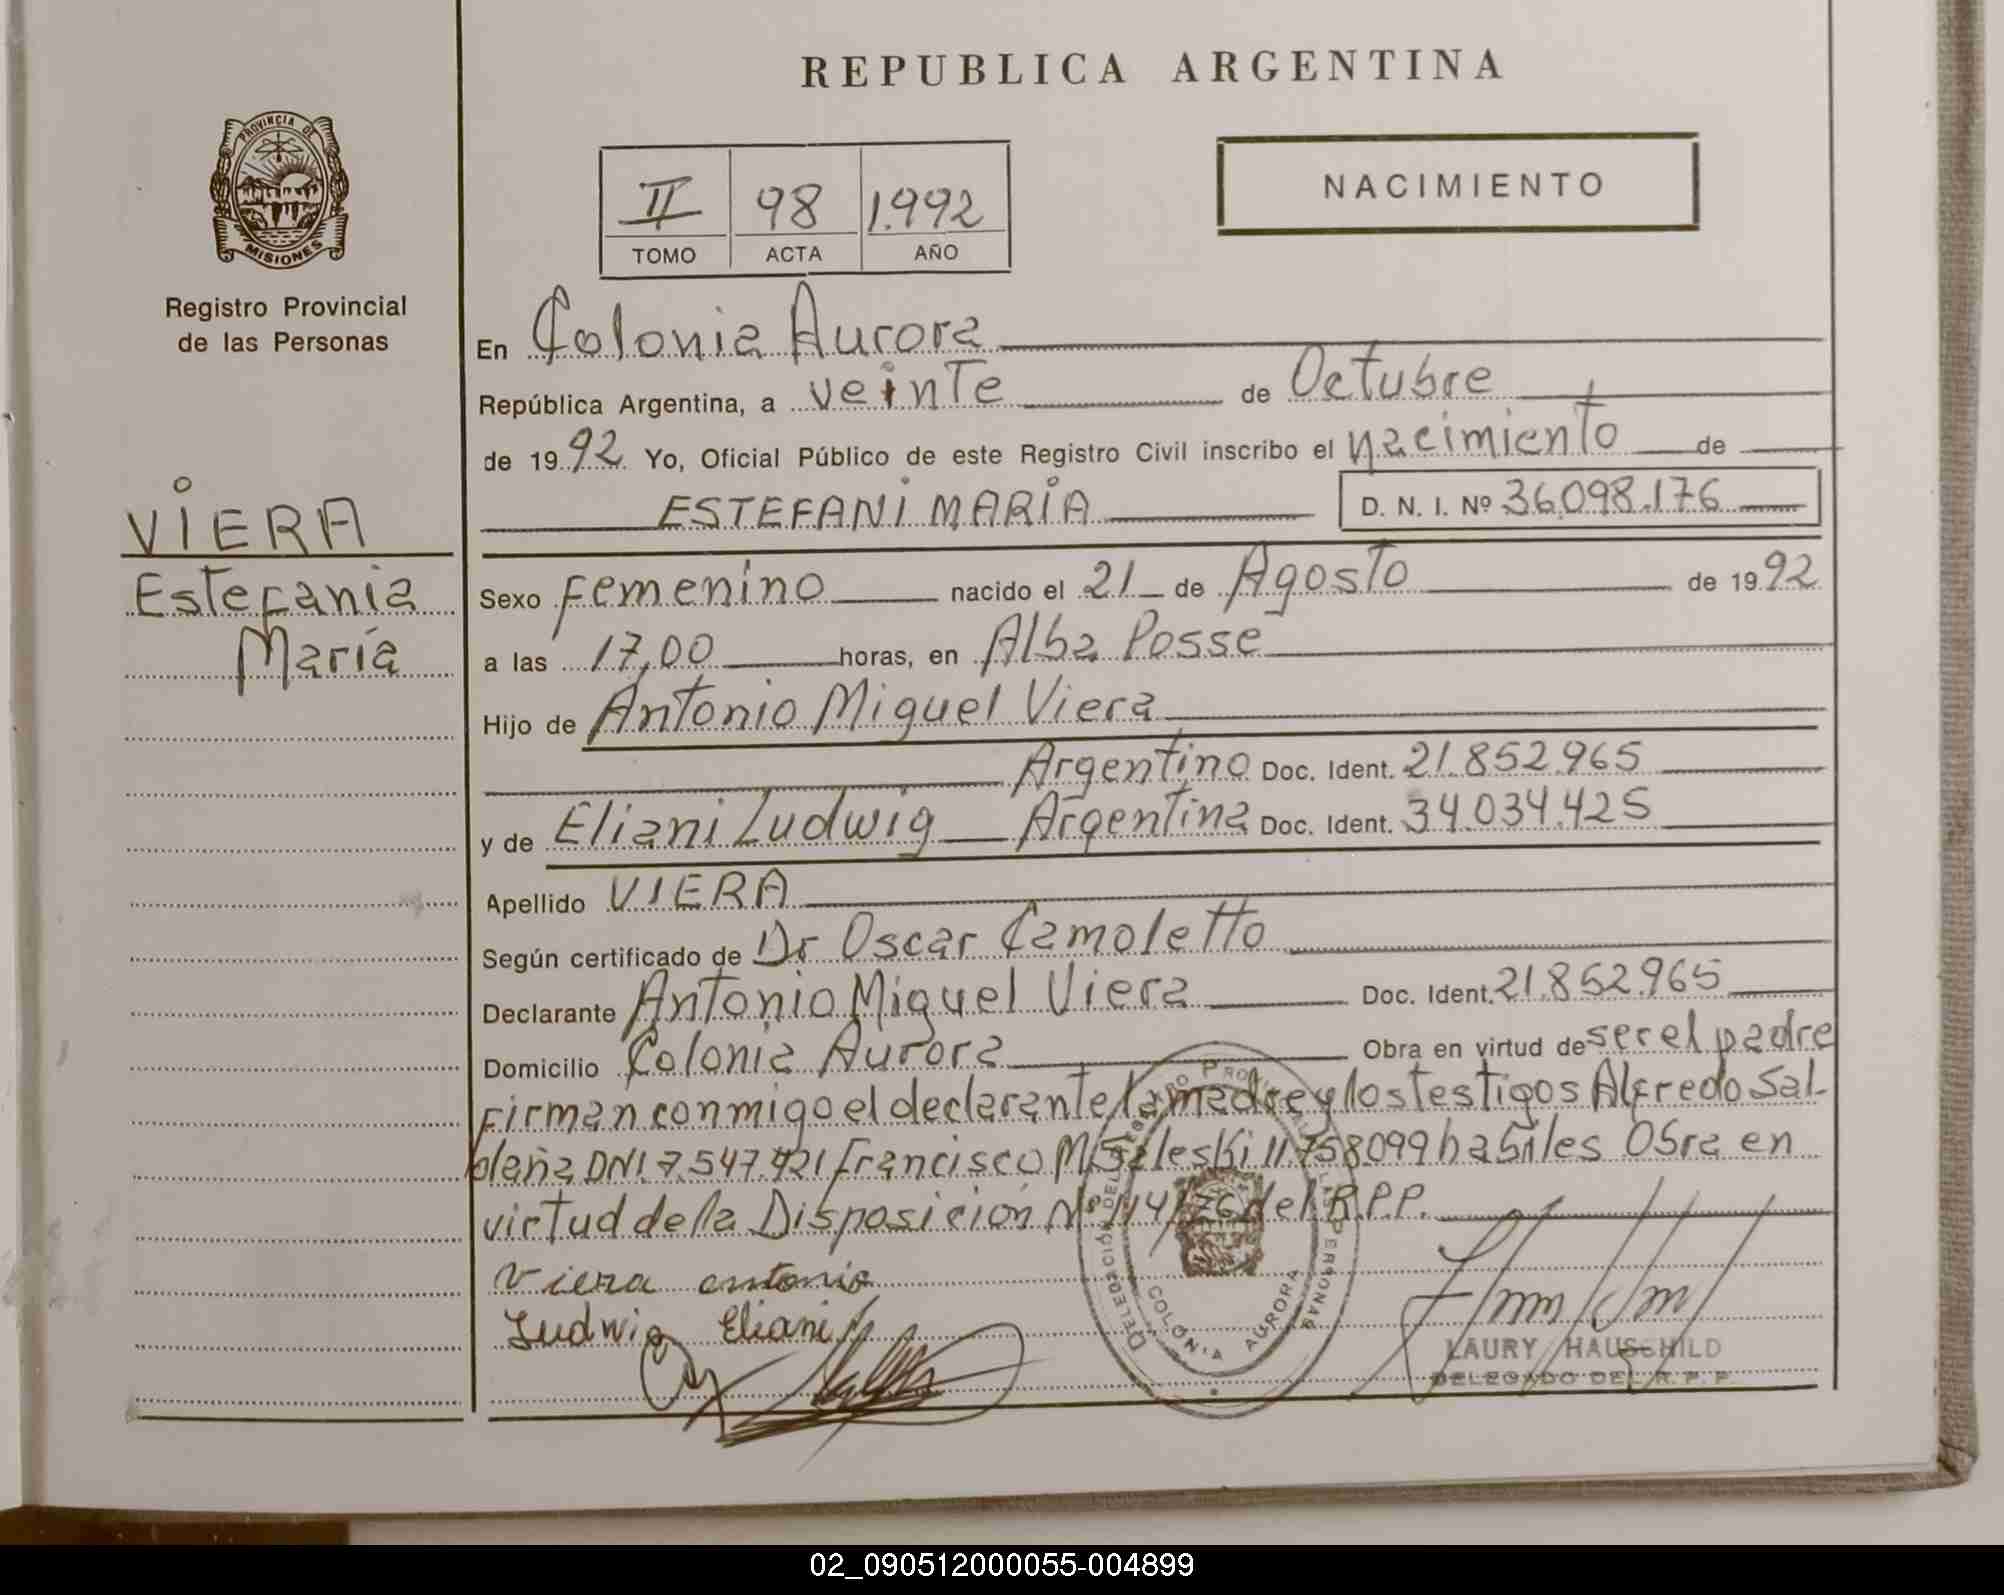 REPUBLICA ARGENTINA
PROVINCIA DE
MISIONES
Registro Provincial
de las Personas
NACIMIENTO
II 98 1.992
TOMO ACTA AÑO
En Colonia Aurora
República Argentina, a veinte de Octubre
de 1992 Yo, Oficial Público de este Registro Civil inscribo el nacimiento de
ESTEFANI MARIA D. N. I. Nº 36.098.176
VIERA
Estefania
María
Sexo Femenino nacido el 21 de Agosto de 1992
a las 17,00 horas, en Alba Posse
Hijo de Antonio Miguel Viera
Argentino Doc. Ident. 21.852.965
y de Eliani Ludwig Argentina Doc. Ident. 34.034.425
Apellido VIERA
Según certificado de Dr Oscar Camoletto
Declarante Antonio Miguel Viera Doc. Ident. 21.852.965
Domicilio Colonia Aurora Obra en virtud de ser el padre
Firman conmigo el declarante la madre y los testigos Alfredo Sal-
daña DNI 7.547.421 Francisco 11.758.099 habiles Obra en
virtud de la Disposición Nº 114/76 del R.P.P.
Viera antonio
Ludwig Eliani
DELEGACIÓN DEL REGISTRO PROVINCIAL DE LAS PERSONAS
COLONIA AURORA
LAURY HAUSCHILD
DELEGADO DEL R. P. P.
02_090512000055-004899